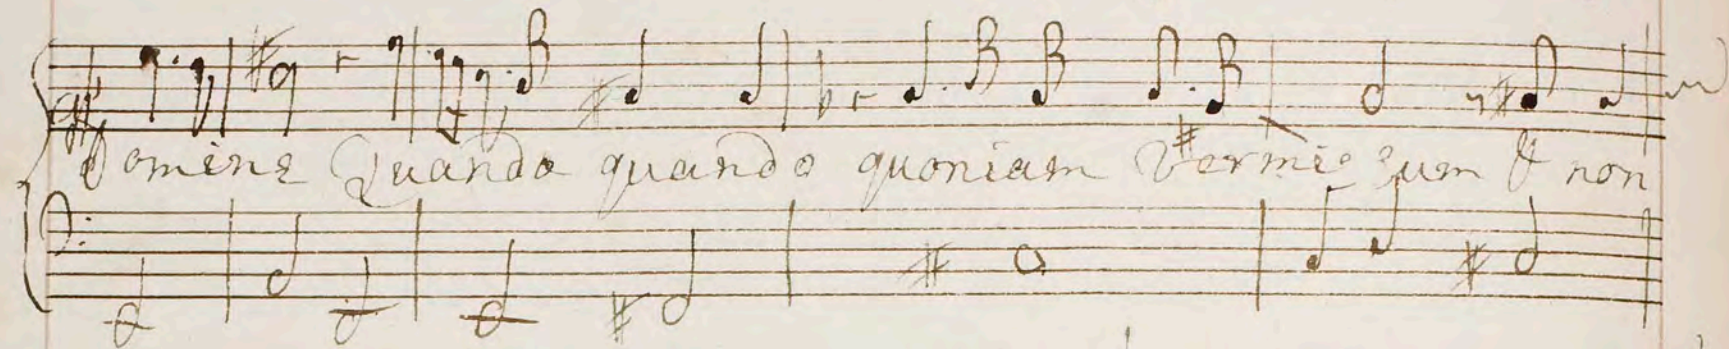 Domine Quando quando quoniam Vermis sum & non